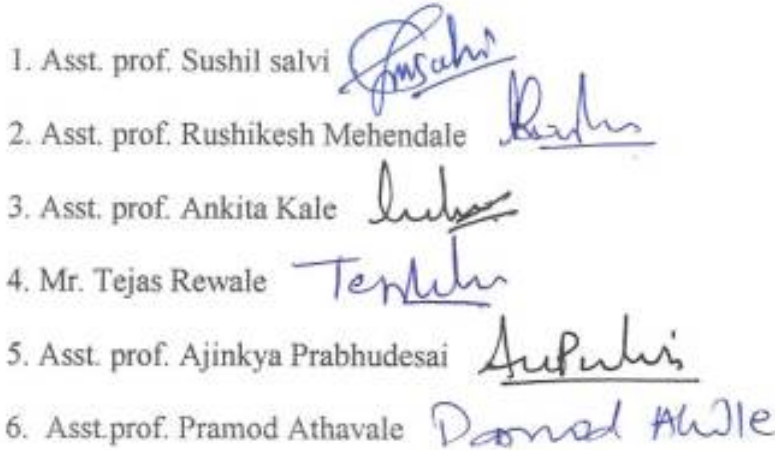 1. Asst. prof. Sushil salvi
2. Asst. prof. Rushikesh Mehendale
3. Asst. prof. Ankita Kale
4. Mr. Tejas Rewale
5. Asst. prof. Ajinkya Prabhudesai
6. Asst.prof. Pramod Athavale